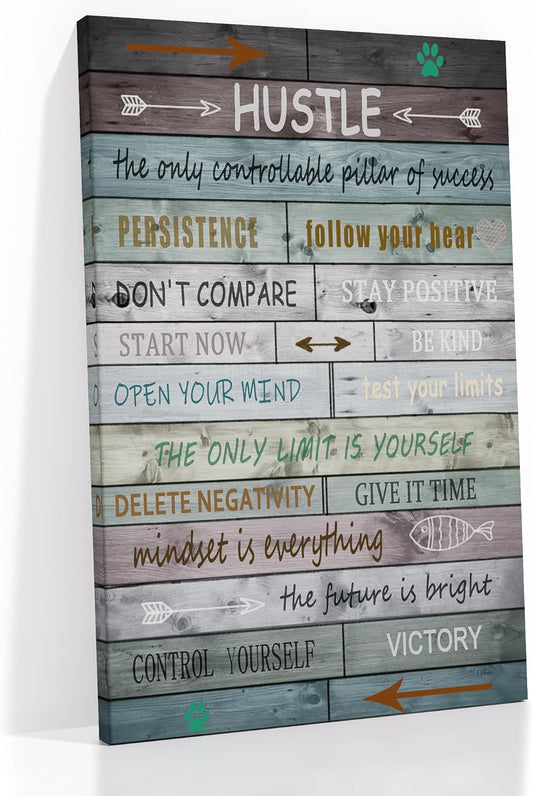 HUSTLE
the only controllable pillar of success
PERSISTENCE follow your hear
DON'T COMPARE STAY POSITIVE
START NOW BE KIND
OPEN YOUR MIND test your limits
THE ONLY LIMIT IS YOURSELF
DELETE NEGATIVITY GIVE IT TIME
mindset is everything
the future is bright
CONTROL YOURSELF VICTORY